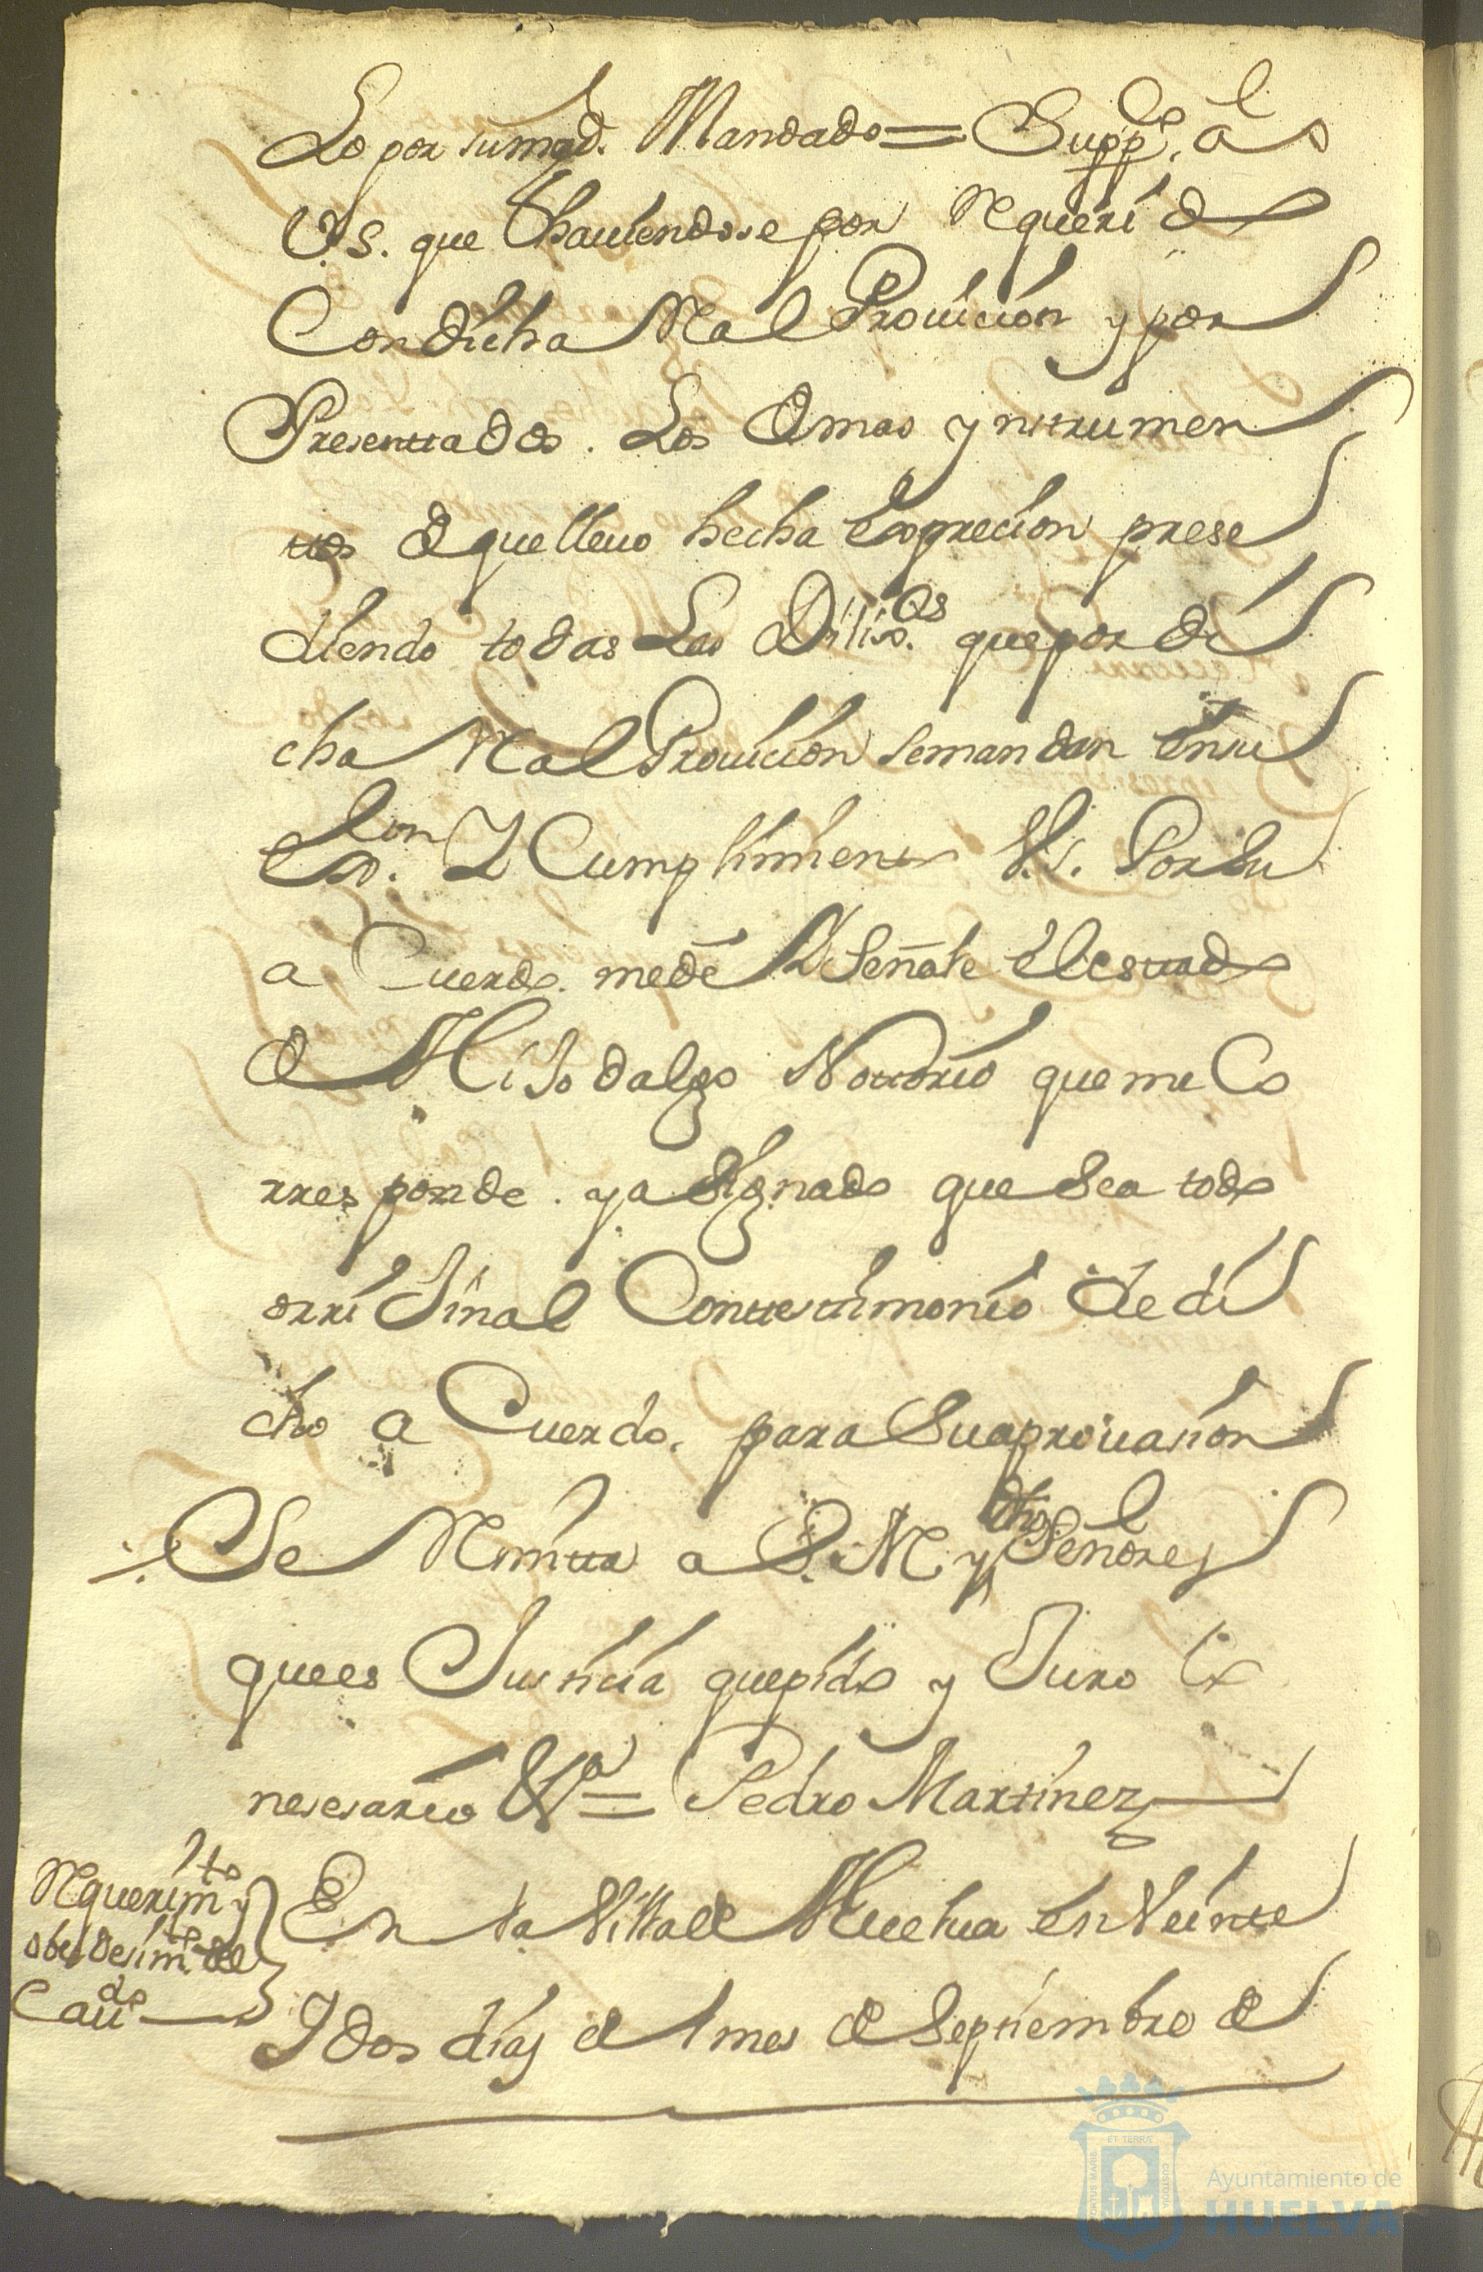 Lo por su mag.d Mandado = Supp.co a
V.S. que haviendose por Requerido
Con dicha Real Provicion y por
Presenttados. Los demas ynstrumen
ttos de que llevo hecha Exprecion prese
diendo todas Las Dilig.as que por di
cha Real Provicion se mandan En su
Ex.on Y Cumplimiento V.S. Por su
a Cuerdo. me dé Y Señale el estado
de Hijo dalgo Nottorio que me Co
rresponde. y asignado que sea todo
orrijinal Con ttestimonio de di
cho a Cuerdo. para su aprovasion
Se Remitta a S. M. y dhos Señores
que es Justicia que pido y Juro lo
nesesario &a = Pedro Martinez
Requerim.to y
obedesim.to del
Cav.do
En la Villa de Huelva en Veinte
Y dos dias del mes de Septiembre de
ET TERRÆ
PORTUS MARIS
CUSTODIA
Ayuntamiento de
HUELVA